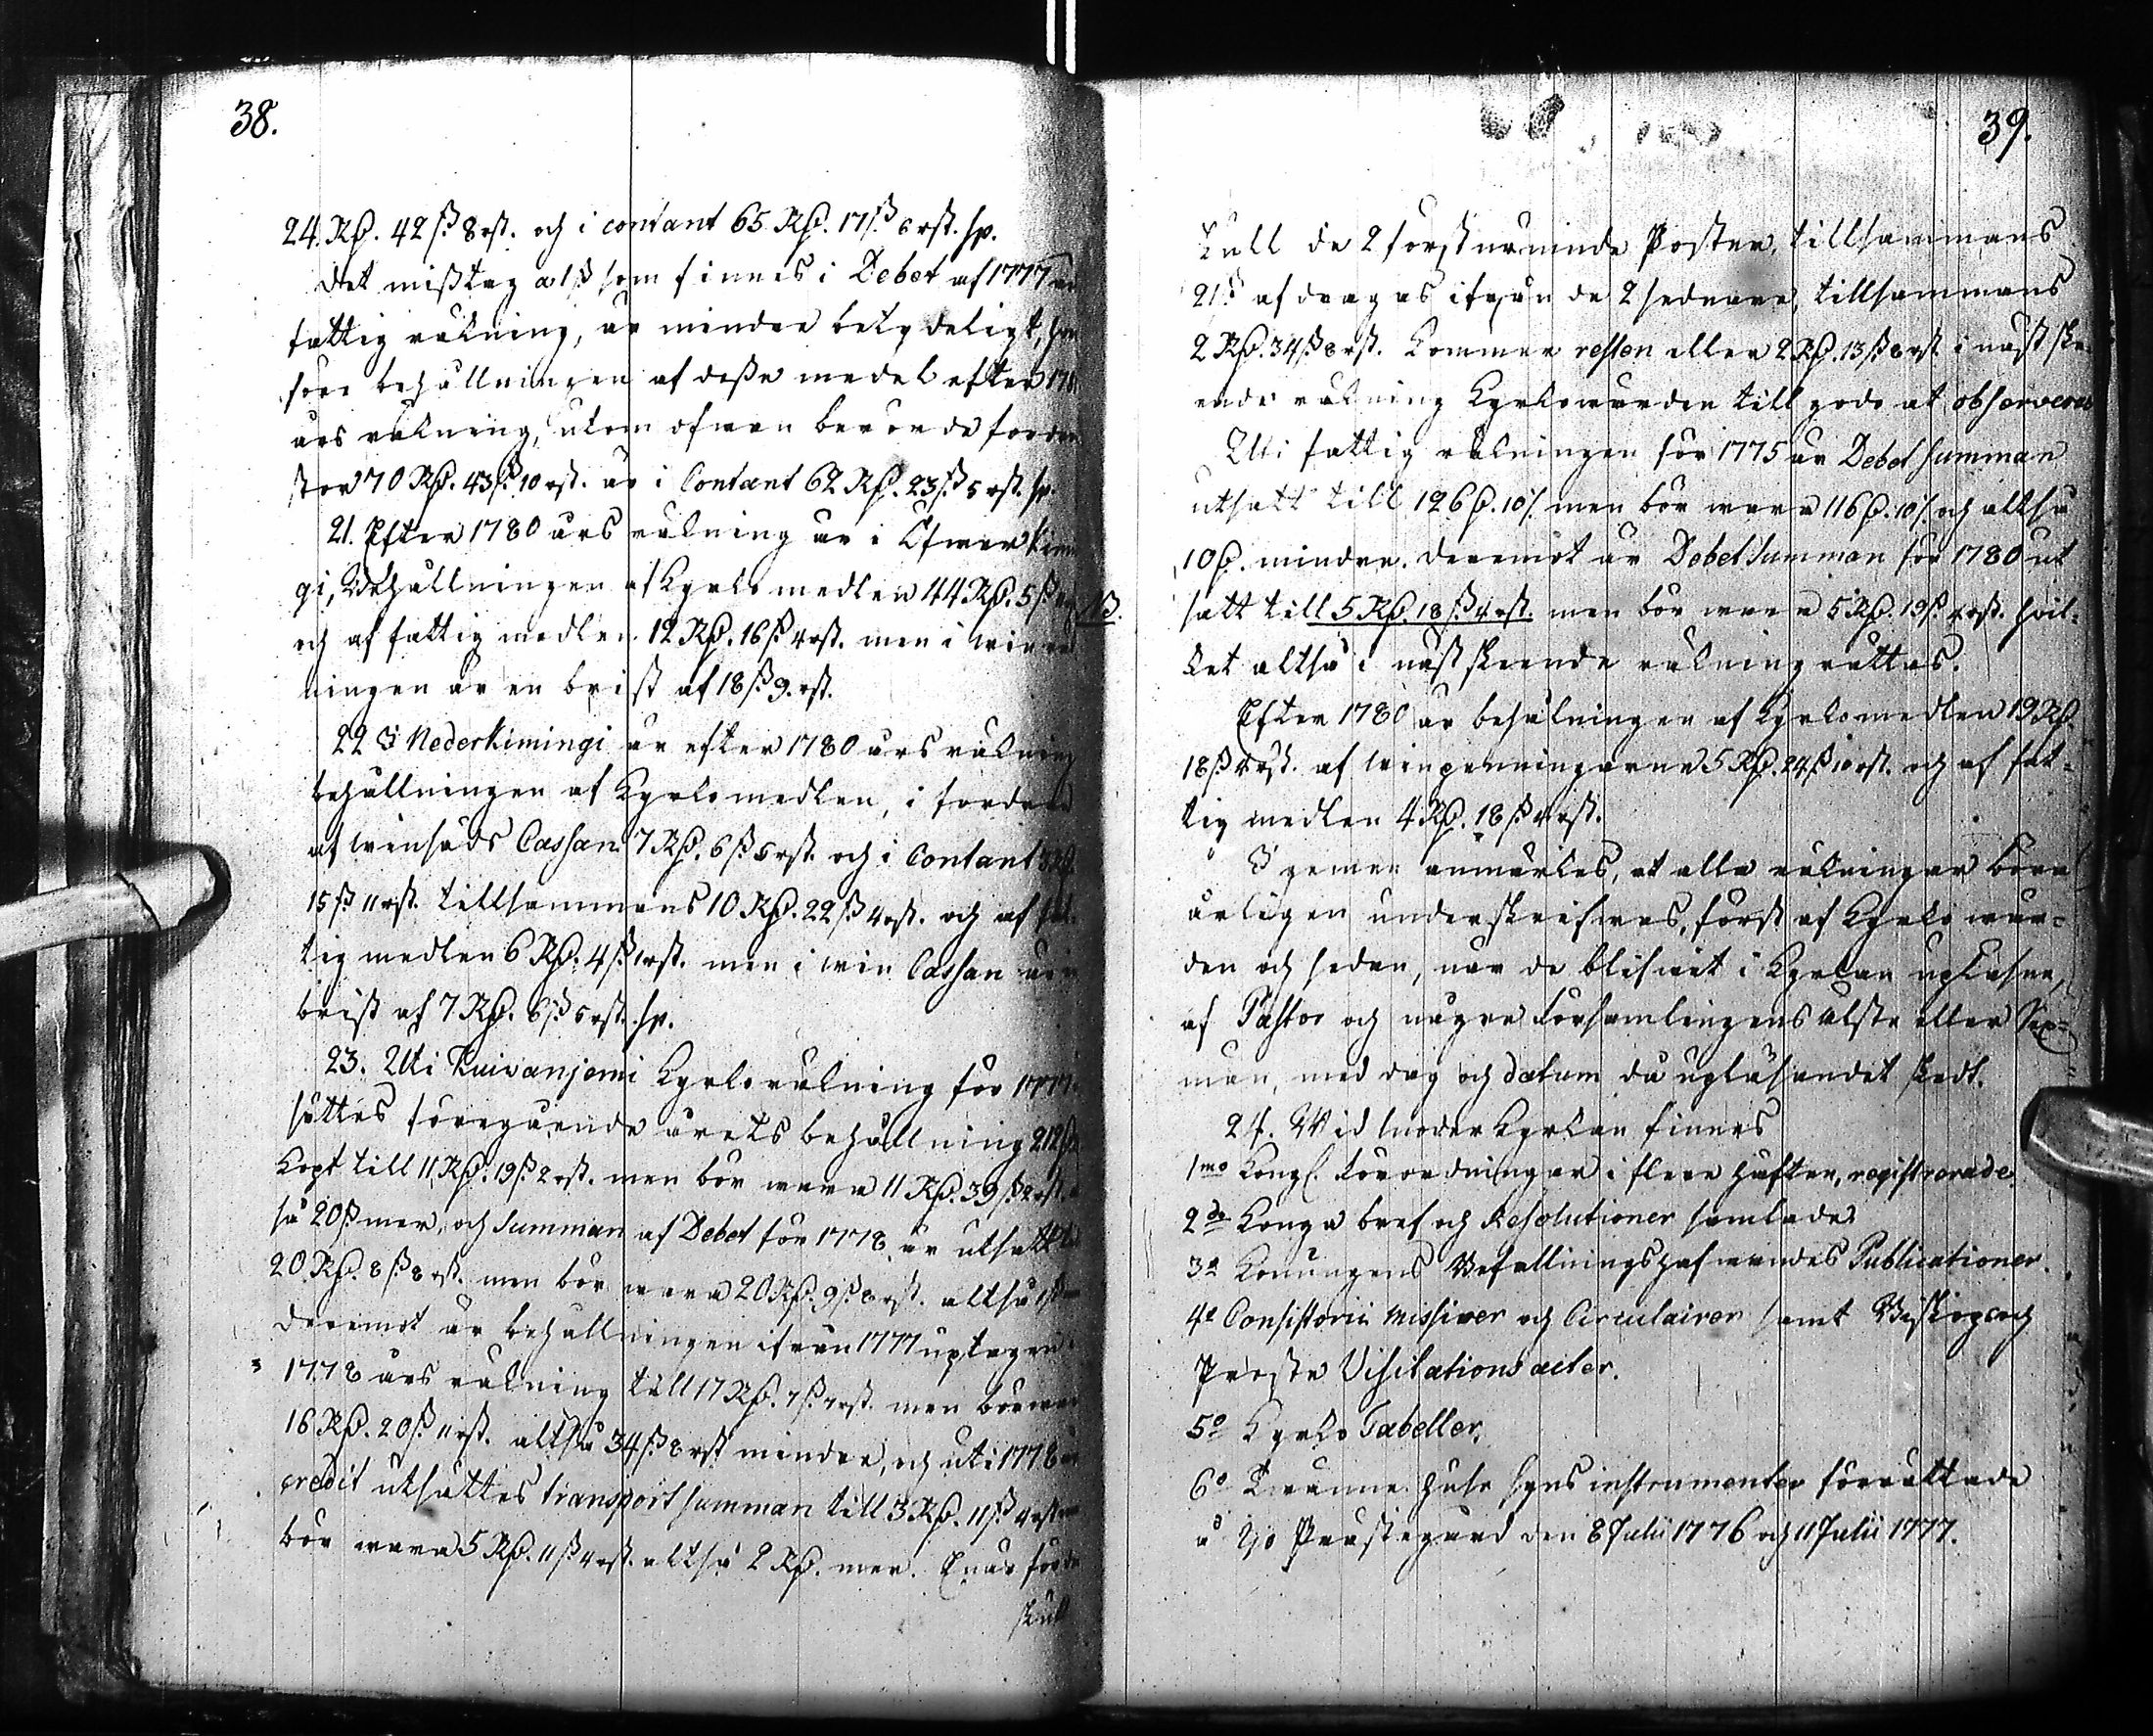 38.
24. Rß. 42 ß 8 rst. och i contant 65 Rß. 17 ß 6 rst. sp.
Det misstag a 1 ß som finnes i Debet af 1777
fattig räkning, är mindre betydeligt,
före behållningen af desse medel efter
års räkning, utom ofwan berörde
stor 70 Rß. 43 ß 10 rst. är i Contant 62 Rß. 23 ß 5 rst. sp.
21. Efter 1780 års räkning är i Öfwerkimin
gi, Behållningen af Kyrko medlen 44 Rß. 5 ß
och af fattig medlen 12 Rß. 16 ß 4 rst. men i
ningen är en brist af 18 ß 9. rst.
22 I Nederkimingi är efter 1780 års räkning
behållningen af Kyrko medlen, i fordran
af winsäds Cassan 7 Rß. 6 ß 5 rst. och i Contant 3 Rß.
15 ß 11 rst. tillsammans 10 Rß. 22 ß 4 rst. och af fat
tig medlen 6 Rß. 4 ß 1 rst. men i win Cassan är
brist af 7 Rß. 6 ß 5 rst. sp.
23. Uti Kuivanjemi Kyrko räkning för 1777.
sättes föregående årets behållning 212
Kopt till 11 Rß. 19 ß 2 rst. men bör wara 11 Rß. 39 ß 2 rst.
så 20 ß mer, och Summan af Debet för 1778 är utsatt
20 Rß. 8 ß 8 rst. men bör wara 20 Rß. 9 ß 8 rst. altså 1 ß
Deremot är behållningen ifrån 1777 uptagen i
1778 års räkning till 17 Rß. 7 ß 7 rst. men bör wara
16 Rß. 20 ß 11 rst. altså 34 ß 8 rst mindre, och uti 1778
credit utsättes transport summan till 3 Rß. 11 ß 4 rst
bör wara 5 Rß. 11 ß 4 rst. altså 2 Rß. mer. Enär för de
skull
39.
Skull de 2 först nämnde Poster, tillsammans
21 ß afdragas ifrån de 2 sednare, tillsammans
2 Rß. 34 ß 8 rst. Kommer resten eller 2 Rß. 13 ß 8 rst i näst ske
ende räkning Kyrkowärden till godo at observeras
Uti fattig räkningen för 1775 är Debet summan
utsatt till 126 ß. 10/. men bör wara 116 ß. 10/. och altså
10 ß. mindre. Deremot är Debet Summan för 1780 ut
NB. satt till 5 Rß. 18 ß 4 rst. men bör wara 5 Rß. 19 ß 4 rst. hwil-
ket altså i näst skeende räkning rättas.
Efter 1780 är behålningen af Kyrko medlen 19 Rß.
18 ß 4 rst. af winpenningarne 5 Rß. 24 ß 10 rst. och af fat-
tig medlen 4 Rß. 18 ß 4 rst.
I gemen anmärkes, at alla räkningar böra
årligen underskrifwas, först af Kyrkowär-
den och sedan, när de blifwit i Kyrkan upläsne,
af Pastor och några Församlingens älste eller Sex-
män, med dag och datum då upläsandet skedt.
24. Wid moder Kyrkan finnes
1mo Kongl. Förordningar i flere häften, registrerade.
2do Konga bref och Resolutioner samlade
3o Konungens Befallningshafwandes Publicationer.
4o Consistorii missiver och Circulairer samt Biskops och
Proste Visitations acter.
5o Kyrko Tabeller.
6o Twänne husesyns instrumenter förrättade
å Ijo Prästegård den 8 Julii 1776 och 11 Julii 1777.